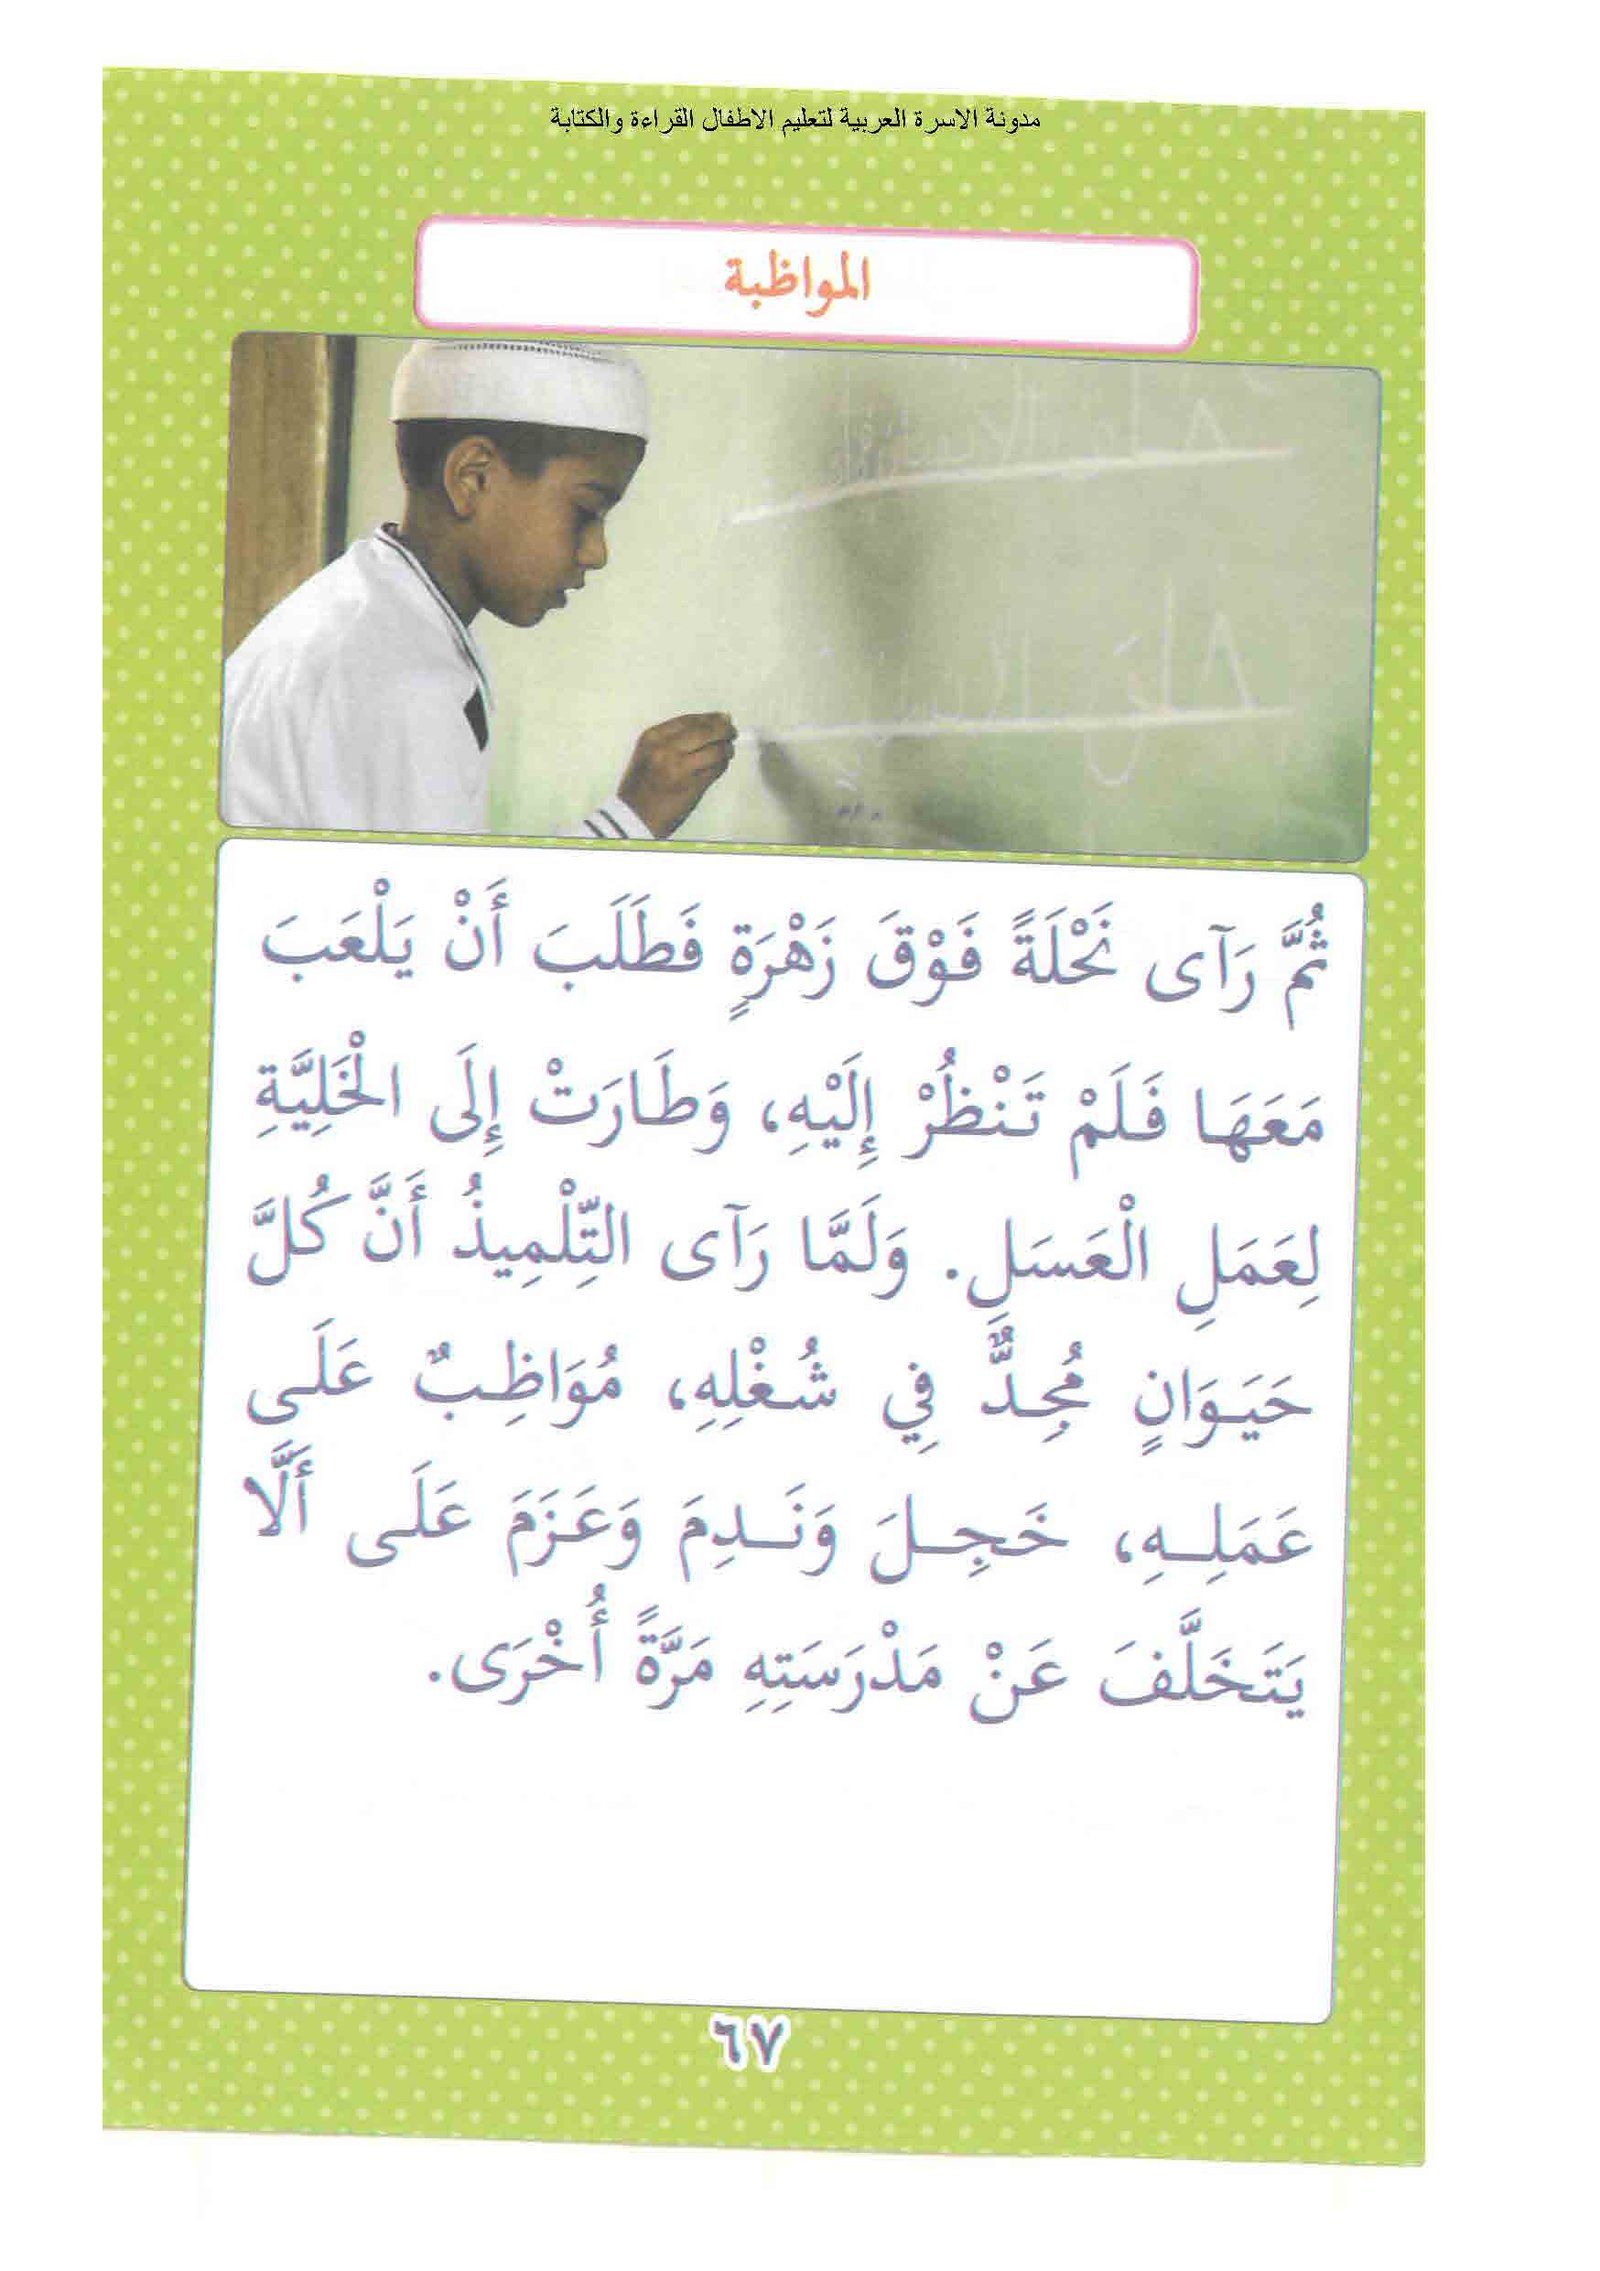 مدونة الاسرة العربية لتعليم الاطفال القراءة والكتابة
المواظبة
ثُمَّ رَآى نَحْلَةً فَوْقَ زَهْرَةٍ فَطَلَبَ أَنْ يَلْعَبَ
مَعَهَا فَلَمْ تَنْظُرْ إِلَيْهِ، وَطَارَتْ إِلَى الْخَلِيَّةِ
لِعَمَلِ الْعَسَلِ. وَلَمَّا رَآى التِّلْمِيذُ أَنَّ كُلَّ
حَيَوَانٍ مُجِدٌّ فِي شُغْلِهِ، مُوَاظِبٌ عَلَى
عَمَلِهِ، خَجِلَ وَنَدِمَ وَعَزَمَ عَلَى أَلَّا
يَتَخَلَّفَ عَنْ مَدْرَسَتِهِ مَرَّةً أُخْرَى.
٦٧